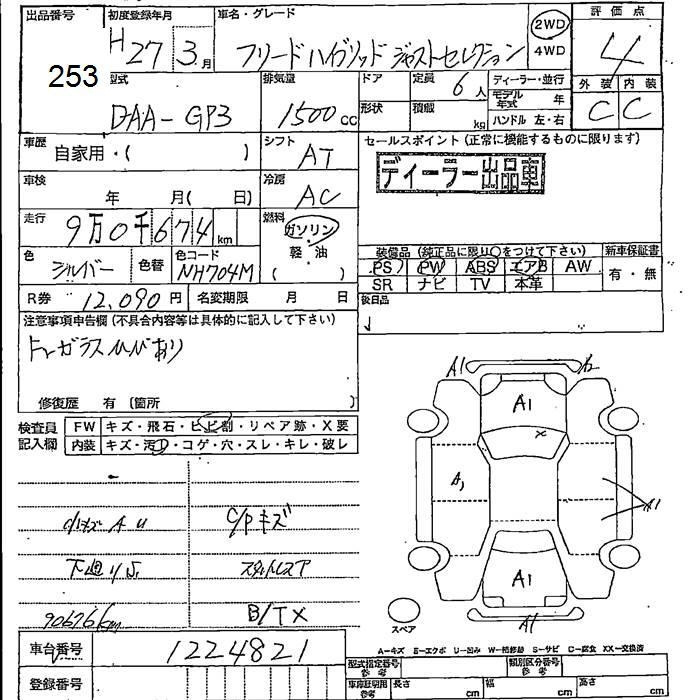 出品番号 初度登録年月 車名・グレード 評価点
253 H27 3月 フリードハイブリッド ジャストセレクション 2WD 4WD 4
型式 排気量 ドア 定員 6人 ディーラー・並行 外装 内装
DAA-GP3 1500cc 形状 積載 kg モデル年式 年 ハンドル 左・右 C C
車歴 自家用・( ) シフト AT セールスポイント (正常に機能するものに限ります)
ディーラー出品車
車検 年 月( 日) 冷房 AC
走行 9万0千674km 燃料 ガソリン・軽油( )
装備品 (純正品に限り○をつけて下さい) 新車保証書
色 シルバー 色替 色コード NH704M PS PW ABS エアB AW 有・無
SR ナビ TV 本革
R券 12,090円 名変期限 月 日 後日品
注意事項申告欄 (不具合内容等は具体的に記入して下さい)
Fガラスひびあり
修復歴 有 (箇所 )
検査員記入欄 FW キズ・飛石・ヒビ割・リペア跡・X要
内装 キズ・汚れ・コゲ・穴・スレ・キレ・破レ
A1
A1
A1
A1
A1
A1
小キズ A U C/Pキズ
下廻りS スタッドレスア
90676km B/TX
スペア
A-キズ E-エクボ U-凹み W-補修跡 S-サビ C-腐食 XX-交換済
車台番号 1224821
型式指定番号 参考 類別区分番号 参考
登録番号 車庫証明用 参考 長さ cm 幅 cm 高さ cm